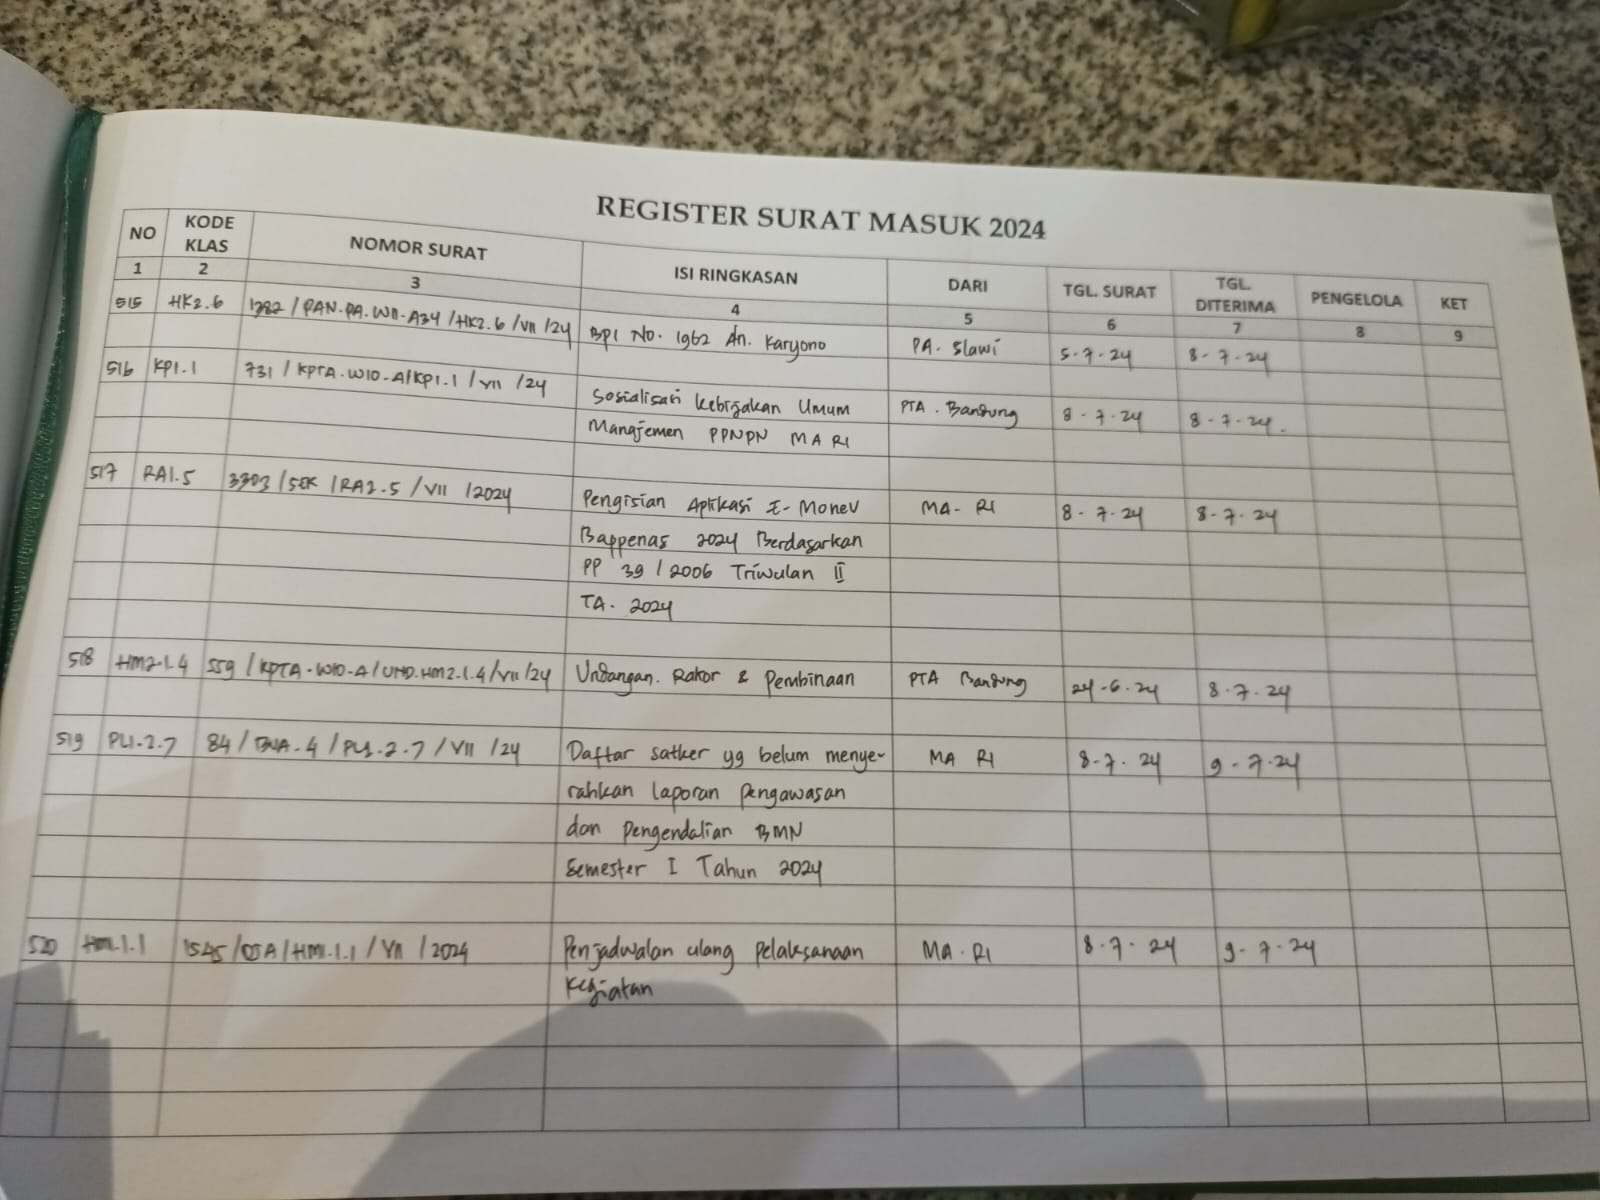 REGISTER SURAT MASUK 2024
NO KODE KLAS NOMOR SURAT ISI RINGKASAN DARI TGL. SURAT TGL. DITERIMA PENGELOLA KET
1 2 3 4 5 6 7 8 9
515 HK2.6 1382 / PAN.PA.W11-A34 / HK2.6 / VII / 24 BPI No. 1962 An. Karyono PA. Slawi 5-7-24 8-7-24
516 KP1.1 731 / KPTA.W10-A/KP1.1 / VII / 24 Sosialisasi Kebijakan Umum PTA. Bandung 8-7-24 8-7-24.
Manajemen PPNPN MA RI
517 RA1.5 3303 / SEK / RA1.5 / VII / 2024 Pengisian Aplikasi E-Monev MA-RI 8-7-24 8-7-24
Bappenas 2024 Berdasarkan
PP 39 / 2006 Triwulan II
TA. 2024
518 HM2.1.4 559 / KPTA-W10-A / UND.HM2.1.4 / VII / 24 Undangan. Rakor & Pembinaan PTA Bandung 24-6-24 8-7-24
519 PL1.2.7 84 / BUA.4 / PL1.2.7 / VII / 24 Daftar satker yg belum menye- MA RI 8-7-24 9-7-24
rahkan laporan pengawasan
dan Pengendalian BMN
Semester I Tahun 2024
520 HM1.1.1 1545 / DJA / HM1.1.1 / VII / 2024 Penjadwalan ulang pelaksanaan MA.RI 8-7-24 9-7-24
kegiatan